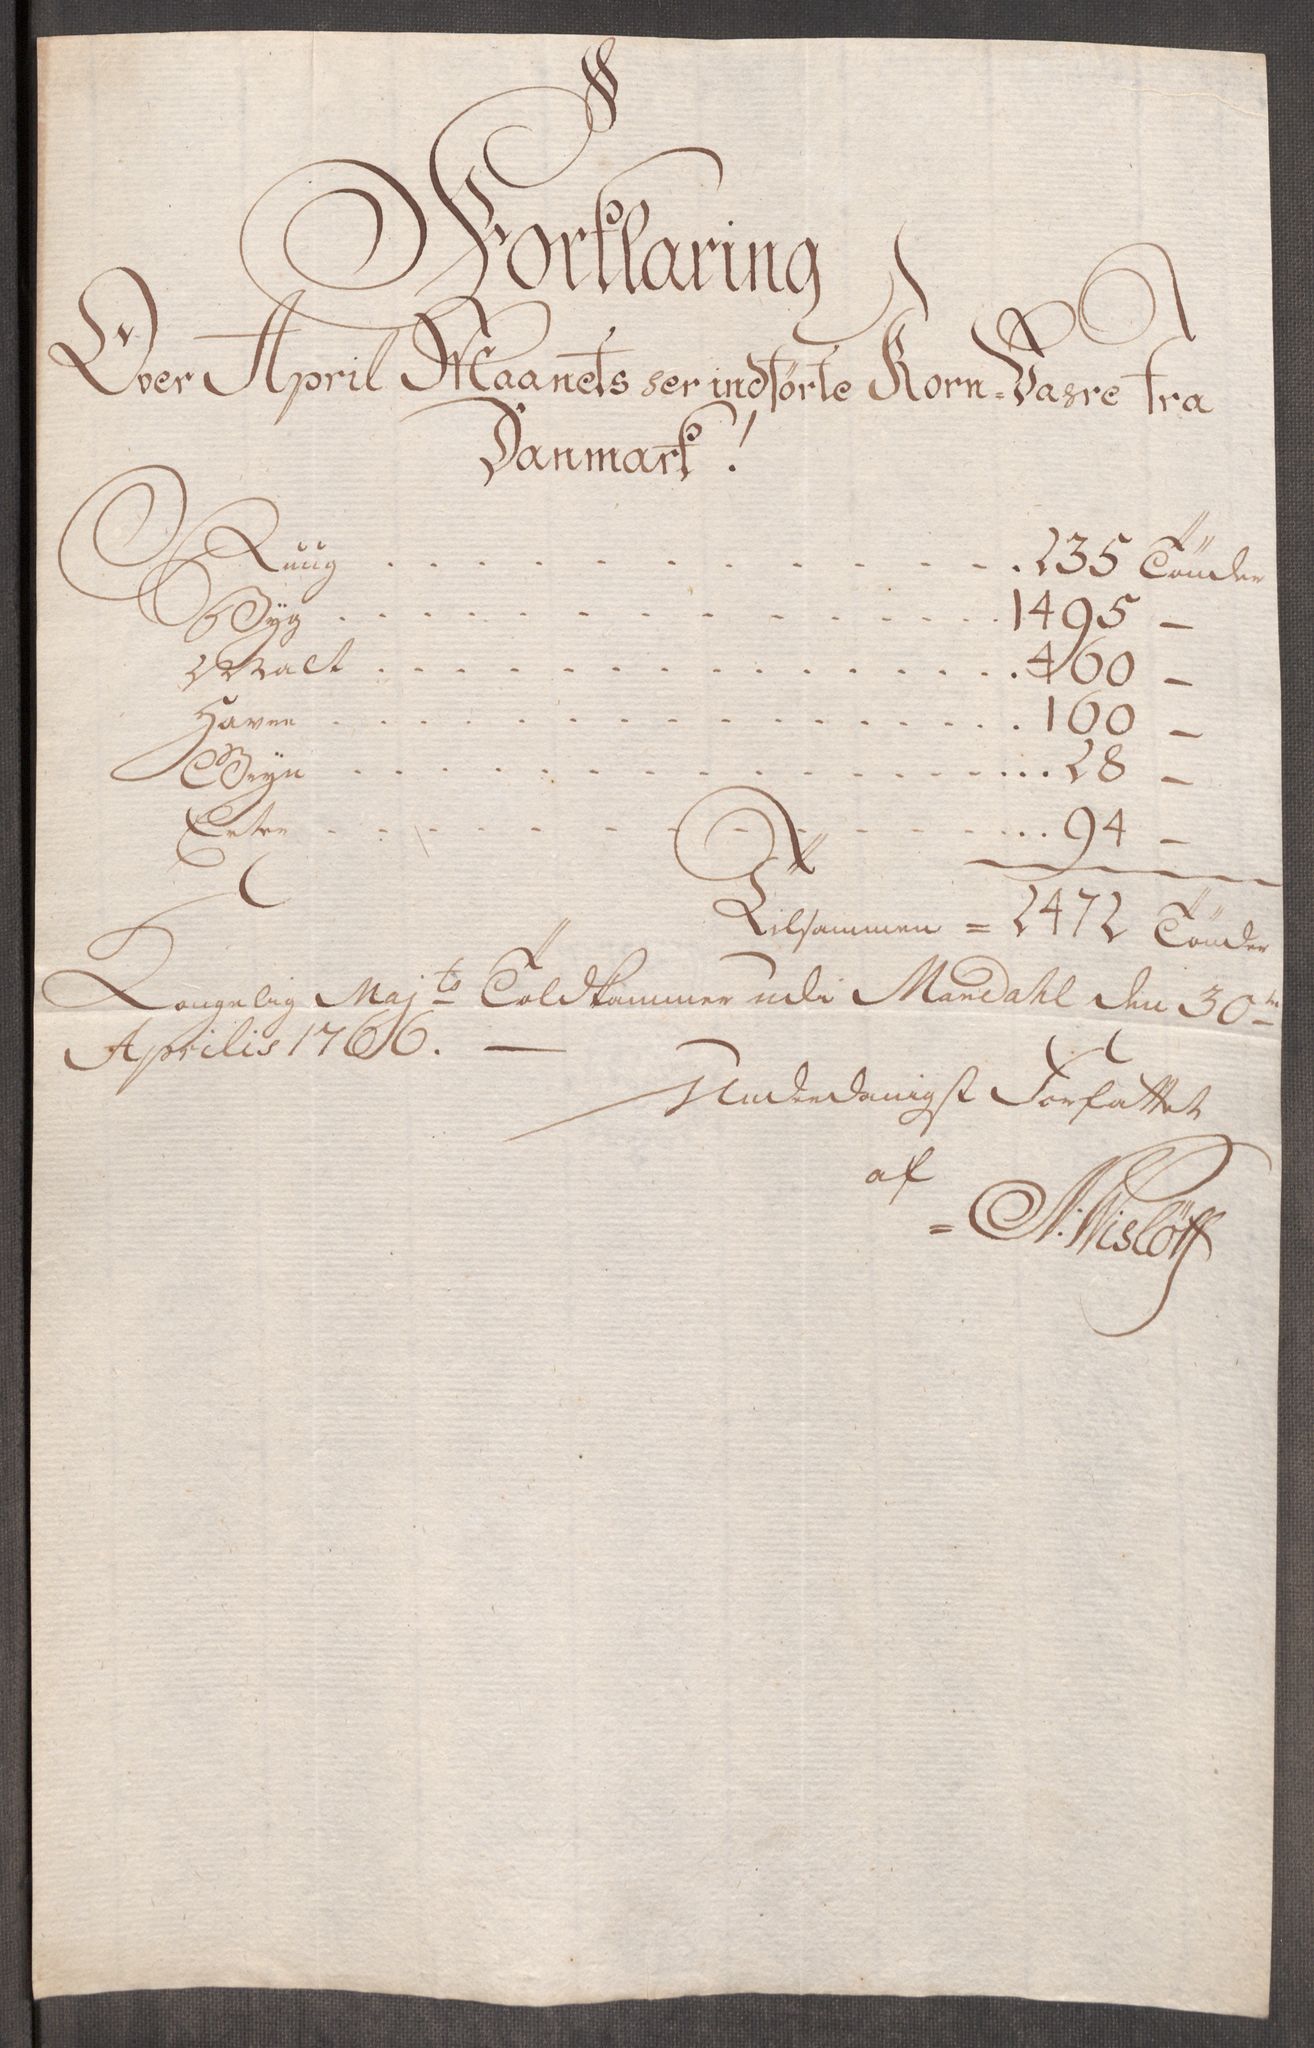 Forklaring
Over April Maanets her indførte Korn-Vahre fra
Danmark!
Ruug . . . . . . . . . . . . . . 235 Tönder
Byg . . . . . . . . . . . . . . 1495 —
Malt . . . . . . . . . . . . . . 460 —
Havre . . . . . . . . . . . . . . 160 —
Gryn . . . . . . . . . . . . . . 28 —
Erter . . . . . . . . . . . . . . 94 —
Tilsammen = 2472 Tönder
Kongelig Majts Toldkammer udi Mandahl den 30te
Aprilis 1766. —
Underdanigst Forfattet
af
= N: Wislöff